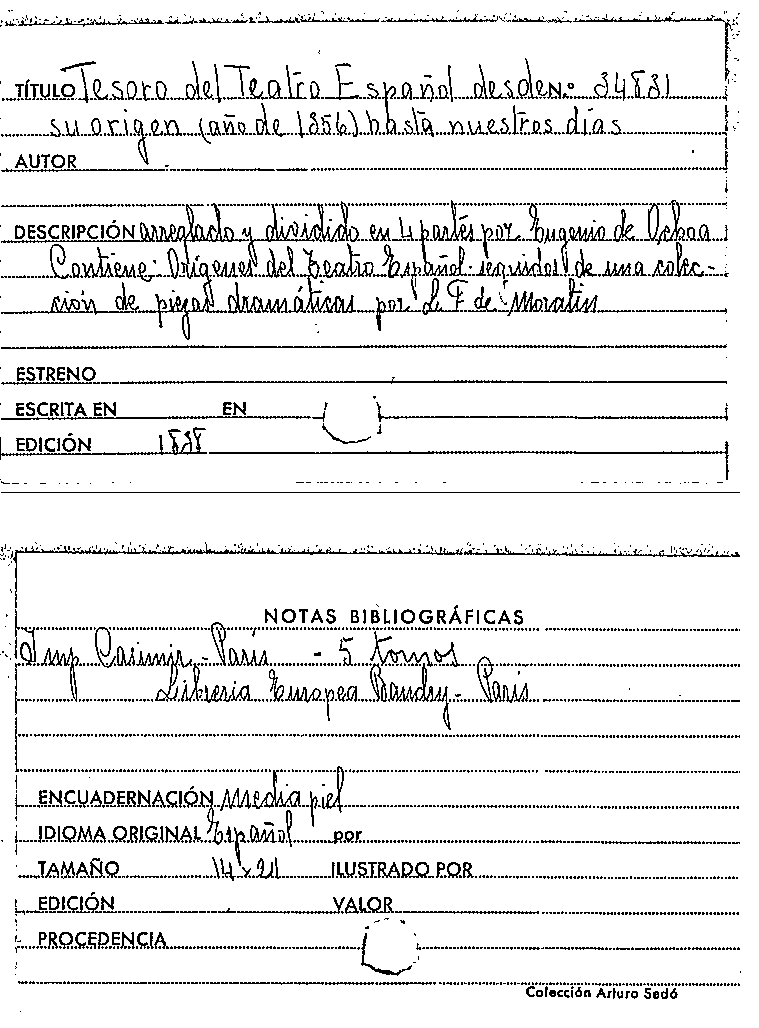 TÍTULO Tesoro del Teatro Español desde N.º 34831
su origen (año de 1356) hasta nuestros días
AUTOR
DESCRIPCIÓN arreglado y dividido en 4 partes por Eugenio de Ochoa
Contiene: Orígenes del Teatro Español seguidos de una colec-
ción de piezas dramáticas por L F de Moratin
ESTRENO
ESCRITA EN EN
EDICIÓN 1838
NOTAS BIBLIOGRÁFICAS
Imp Casimir - París - 5 tomos
Libreria Europea Baudry - Paris
ENCUADERNACIÓN Media piel
IDIOMA ORIGINAL Español por
TAMAÑO 14 x 21 ILUSTRADO POR
EDICIÓN VALOR
PROCEDENCIA
Colección Arturo Sedó